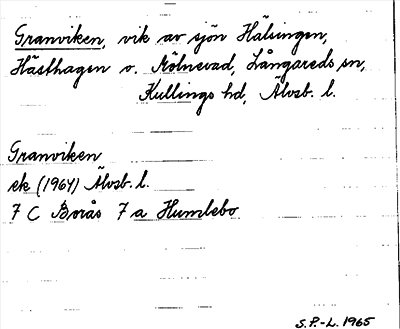 Granviken, vik av sjön Hälsingen,
Hästhagen o. Kölnevad, Långareds sn,
Kullings hd, Älvsb. l.
Granviken
ek (1964) Älvsb. l.
7 C Borås 7 a Humlebo
S.P.-L. 1965